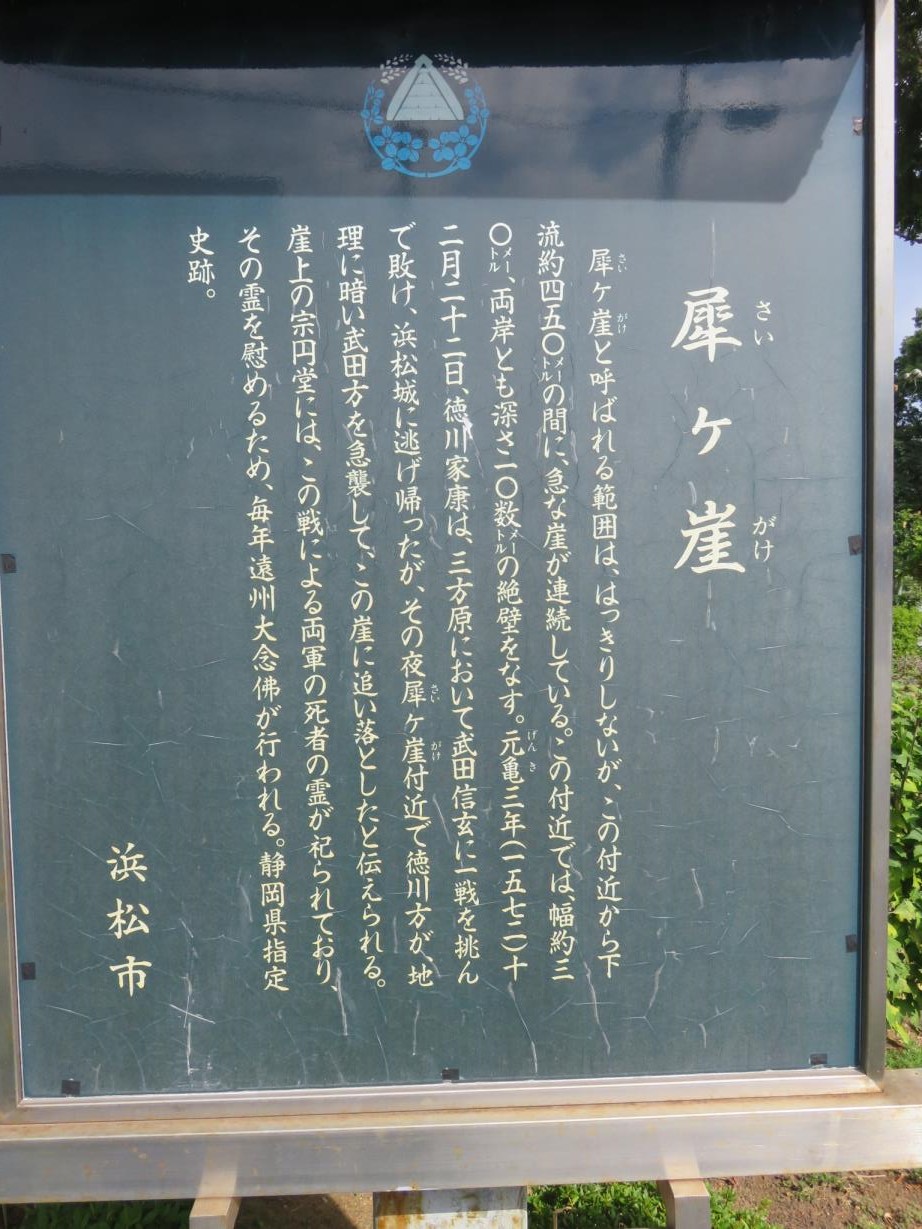 犀ヶ崖
さい
がけ
犀ヶ崖と呼ばれる範囲は、はっきりしないが、この付近から下
さい
がけ
流約四五〇メートルの間に、急な崖が連続している。この付近では、幅約三
〇メートル、両岸とも深さ二〇数メートルの絶壁をなす。元亀三年(一五七二)十
げんき
二月二十二日、徳川家康は、三方原において武田信玄に一戦を挑ん
で敗け、浜松城に逃げ帰ったが、その夜犀ヶ崖付近で徳川方が、地
さい
がけ
理に暗い武田方を急襲して、この崖に追い落としたと伝えられる。
崖上の宗円堂には、この戦による両軍の死者の霊が祀られており、
その霊を慰めるため、毎年遠州大念佛が行われる。静岡県指定
史跡。
浜松市